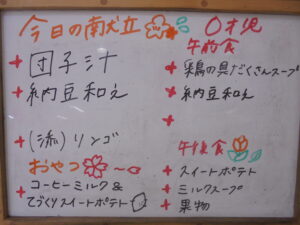 今日の献立
+ 団子汁
+ 納豆和え
+ (添) リンゴ
おやつ
+ コーヒーミルク&
てづくりスイートポテト
0才児
午前食
+ 鶏の具だくさんスープ
+ 納豆和え
+
午後食
+ スイートポテト
+ ミルクスープ
+ 果物